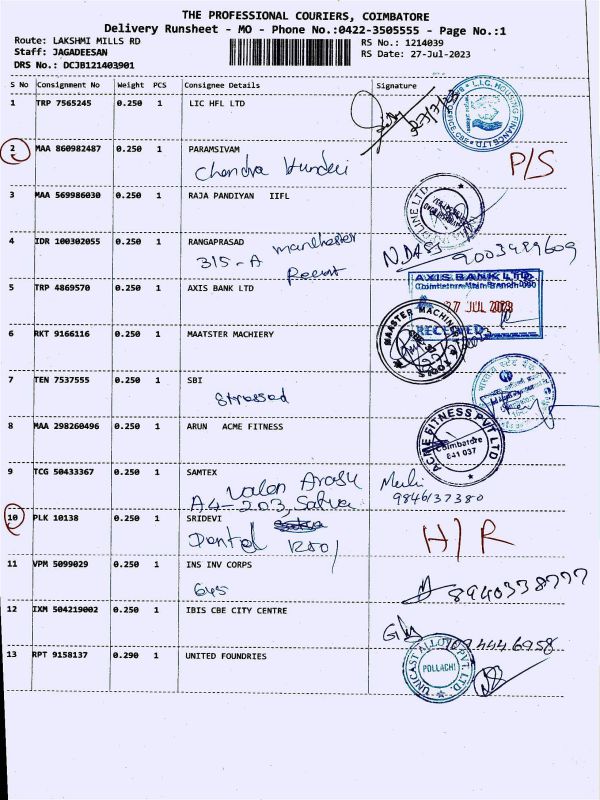 THE PROFESSIONAL COURIERS, COIMBATORE
Delivery Runsheet - MO - Phone No.:0422-3505555 - Page No.:1
Route: LAKSHMI MILLS RD
RS No.: 1214039
Staff: JAGADEESAN
RS Date: 27-Jul-2023
DRS No.: DCJB121403901
S No Consignment No Weight PCS Consignee Details Signature
1 TRP 7565245 0.250 1 LIC HFL LTD
27/7/23
L.I.C. HOUSING FINANCE LTD.
2 MAA 860982487 0.250 1 PARAMSIVAM
Chandra P/S
3 MAA 569986030 0.250 1 RAJA PANDIYAN IIFL
4 IDR 100302055 0.250 1 RANGAPRASAD
315-A Manchester
9003489609
5 TRP 4869570 0.250 1 AXIS BANK LTD
AXIS BANK LTD
Coimbatore Main Branch
27 JUL 2023
RECEIVED
6 RKT 9166116 0.250 1 MAATSTER MACHIERY
MAASTER MACHINE
7 TEN 7537555 0.250 1 SBI
Stressed
भारतीय स्टेट बैंक
8 MAA 298260496 0.250 1 ARUN ACME FITNESS
ACME FITNESS PVT LTD
Coimbatore
641 037
9 TCG 50433367 0.250 1 SAMTEX
Valan Arasu
A4-203, Satva
9846137380
10 PLK 10138 0.250 1 SRIDEVI
Dental H/R
11 VPM 5099029 0.250 1 INS INV CORPS
645
8940338777
12 IXM 504219002 0.250 1 IBIS CBE CITY CENTRE
13 RPT 9158137 0.290 1 UNITED FOUNDRIES
UNICAST ALLOYS PVT. LTD.
POLLACHI